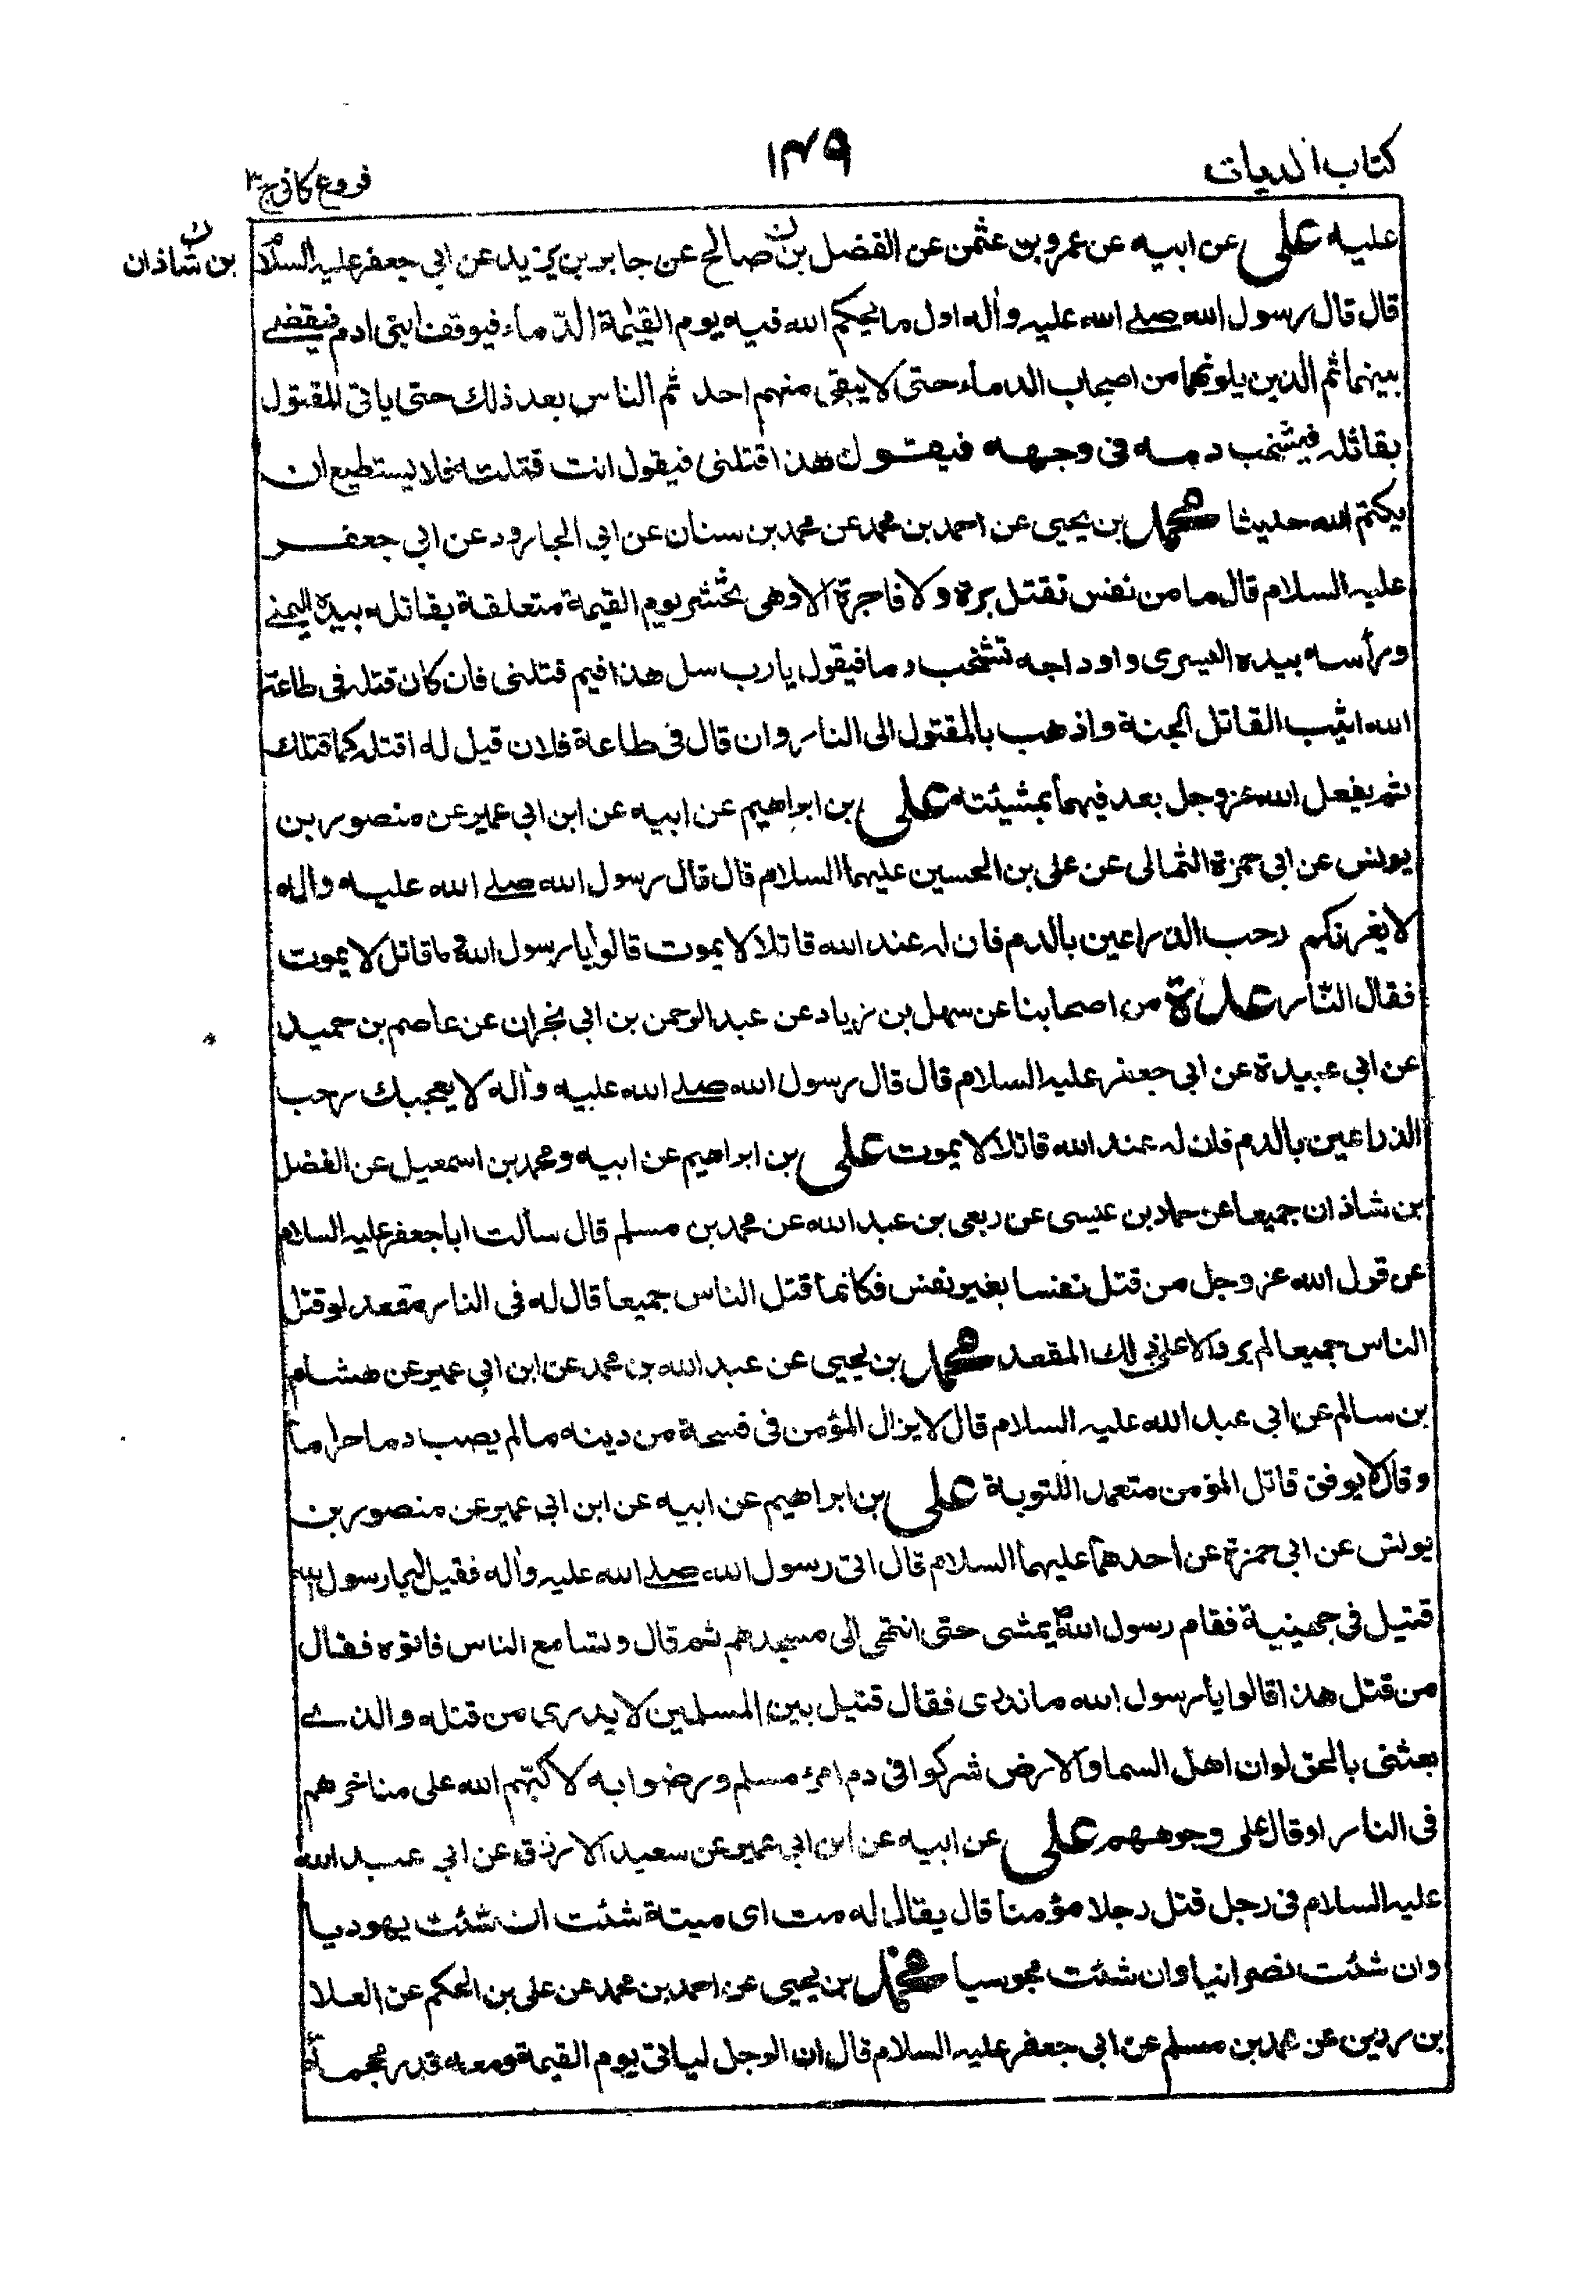 كتاب الديات
١٣٩
فروع كافي ج ٣
عليه على عن ابيه عن عمرو بن عثمن عن الفضل بن صالح عن جابر بن يزيد عن ابي جعفر عليه السلام
ن
بن شاذان
قال قال رسول الله صلے الله عليه واله اول ما يحكم الله فيه يوم القيمة الدماء فيوقف ابنى ادم فيقضے
بينهما ثم الذين يلونهما من اصحاب الدماء حتى لا يبقى منهم احد ثم الناس بعد ذلك حتى ياتى المقتول
بقاتله فيشخب دمه فى وجهه فيقول هذا قتلنى فيقول انت قتلته فلا يستطيع ان
يكتم الله حديثا محمد بن يحيى عن احمد بن محمد عن محمد بن سنان عن ابي الجارود عن ابي جعفر
عليه السلام قال ما من نفس تقتل برة ولا فاجرة الا وهى تحشر يوم القيمة متعلقة بقاتله بيده اليمنے
وراسه بيده اليسرى واوداجه تشخب دما فيقول يا رب سل هذا فيم قتلنى فان كان قتله فى طاعة
الله اثيب القاتل الجنة واذهب بالمقتول الى النار وان قال فى طاعة فلان قيل له اقتله كما قتلك
ثم يفعل الله عز وجل بعد فيهما بمشيئته على بن ابراهيم عن ابيه عن ابن ابي عمير عن منصور بن
يونس عن ابي حمزة الثمالى عن على بن الحسين عليهما السلام قال قال رسول الله صلے الله عليه واله
لا يغرنكم رحب الذراعين بالدم فان له عند الله قاتلا لا يموت قالوا يا رسول الله وما قاتل لا يموت
فقال النار عدة من اصحابنا عن سهل بن زياد عن عبد الرحمن بن ابي نجران عن عاصم بن حميد
عن ابي عبيدة عن ابي جعفر عليه السلام قال قال رسول الله صلے الله عليه واله لا يعجبك رحب
الذراعين بالدم فان له عند الله قاتلا لا يموت على بن ابراهيم عن ابيه ومحمد بن اسمعيل عن الفضل
بن شاذان جميعا عن حماد بن عيسى عن ربعى بن عبد الله عن محمد بن مسلم قال سألت ابا جعفر عليه السلام
عن قول الله عز وجل من قتل نفسا بغير نفس فكانما قتل الناس جميعا قال له فى النار مقعد لو قتل
الناس جميعا لم يرد الا على ذلك المقعد محمد بن يحيى عن عبد الله بن محمد عن ابن ابي عمير عن هشام
بن سالم عن ابي عبد الله عليه السلام قال لا يزال المؤمن فى فسحة من دينه ما لم يصب دما حراما
وقال لا يوفق قاتل المؤمن متعمدا للتوبة على بن ابراهيم عن ابيه عن ابن ابي عمير عن منصور بن
يونس عن ابي حمزة عن احدهما عليهما السلام قال اتى رسول الله صلے الله عليه واله فقيل له يا رسول الله
قتيل فى جهينية فقام رسول الله يمشى حتى انتهى الى مسجدهم ثم قال وتسامع الناس فاتوه فقال
من قتل هذا قالوا يا رسول الله ما ندرى فقال قتيل بين المسلمين لا يدرى من قتله والذے
بعثنى بالحق لو ان اهل السما والارض شركوا فى دم امرئ مسلم ورضوا به لاكبهم الله على مناخرهم
فى النار او قال على وجوههم على عن ابيه عن ابن ابي عمير عن سعيد الازرق عن ابي عبد الله
عليه السلام فى رجل قتل رجلا مؤمنا قال يقال له مت اى ميتة شئت ان شئت يهوديا
وان شئت نصرانيا وان شئت مجوسيا محمد بن يحيى عن احمد بن محمد عن على بن الحكم عن العلا
بن رزين عن محمد بن مسلم عن ابي جعفر عليه السلام قال ان الرجل لياتى يوم القيمة ومعه قدر محجمة